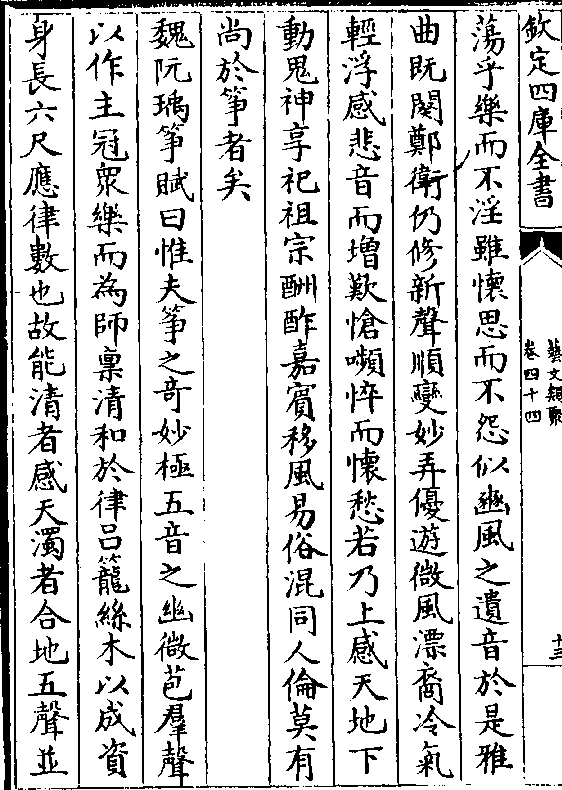 欽定四庫全書
藝文類聚
卷四十四
十三
蕩乎樂而不淫雖懷思而不怨似豳風之遺音於是雅
曲既闋鄭衛仍修新聲順變妙弄優遊微風漂裔冷氣
輕浮感悲音而增歎愴嚬悴而懷愁若乃上感天地下
動鬼神享祀祖宗酬酢嘉賓移風易俗混同人倫莫有
尚於箏者矣
魏阮瑀箏賦曰惟夫箏之奇妙極五音之幽微苞羣聲
以作主冠衆樂而為師稟清和於律吕籠絲木以成資
身長六尺應律數也故能清者感天濁者合地五聲並